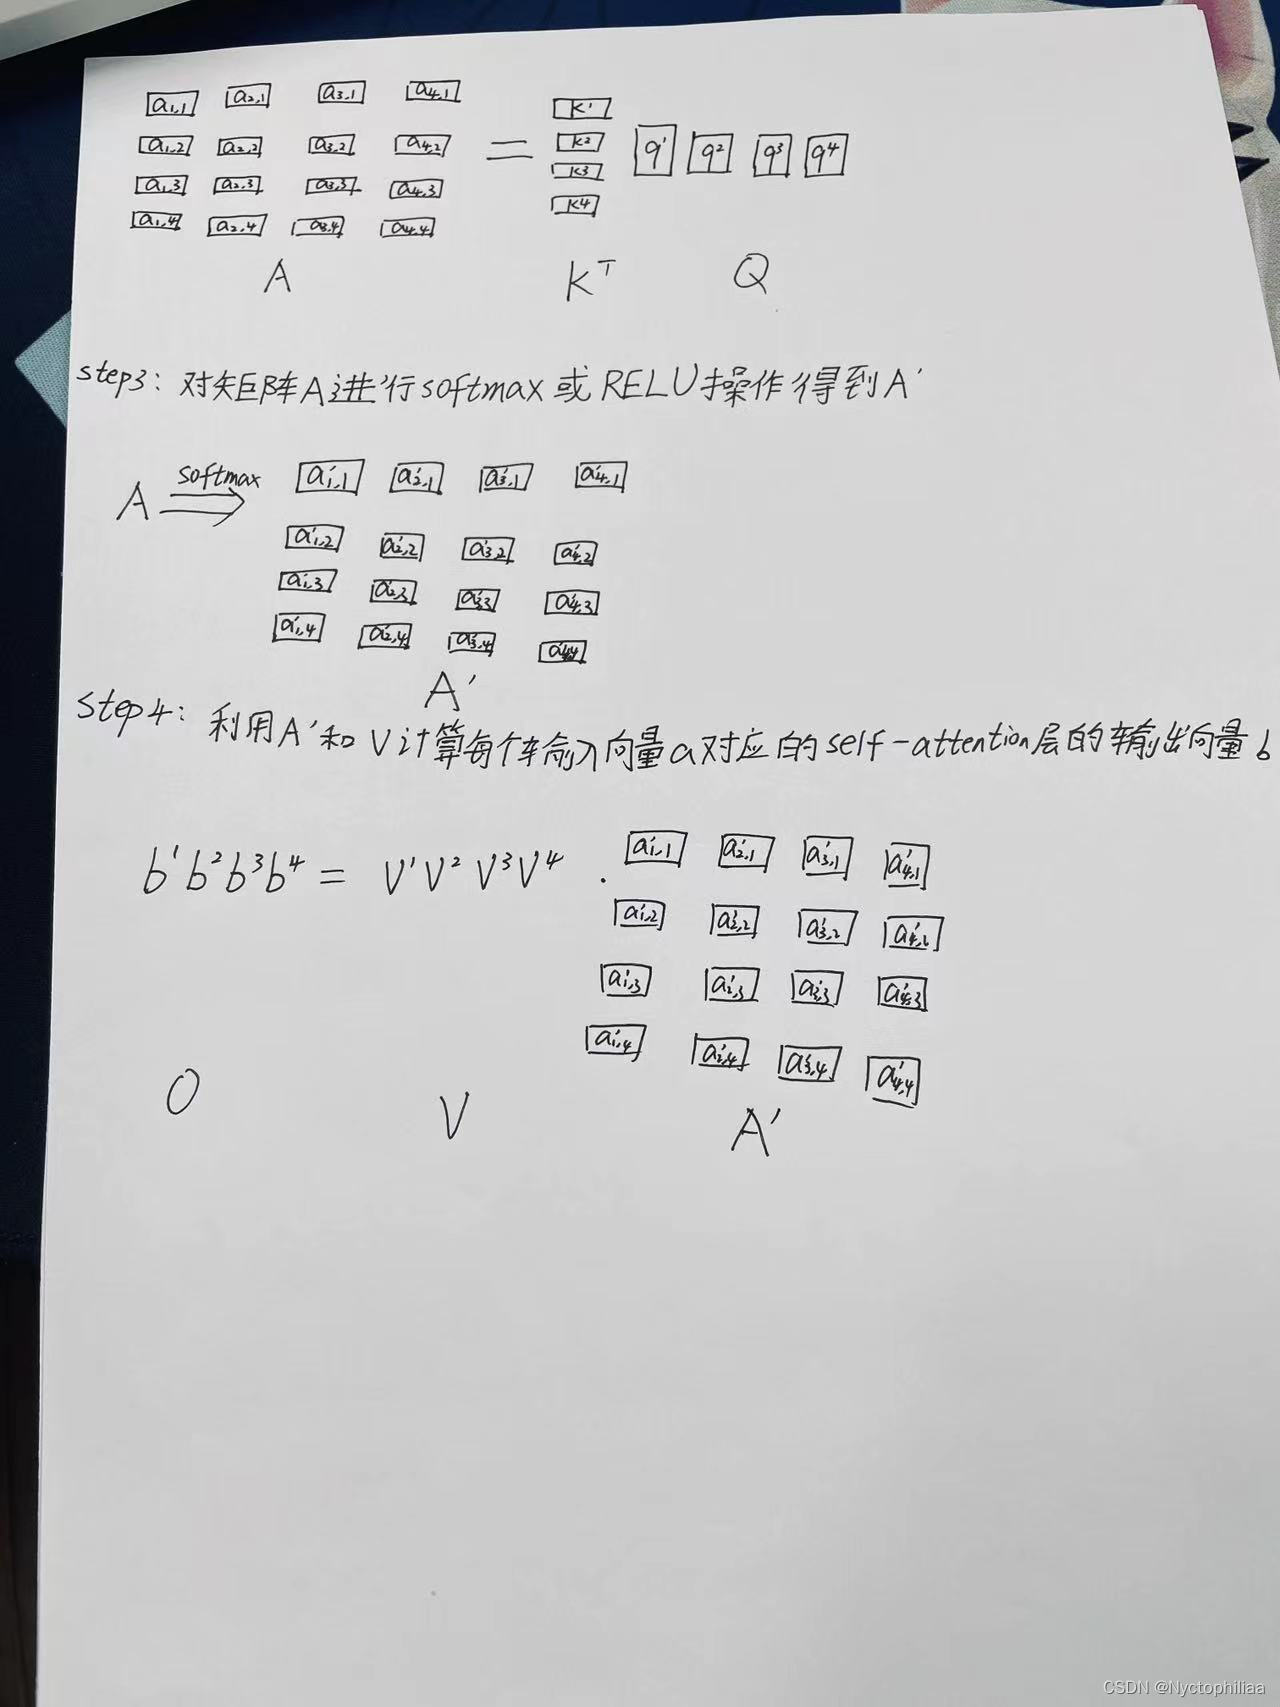 a1,1 a2,1 a3,1 a4,1
a1,2 a2,2 a3,2 a4,2 = K¹ K² K³ K⁴ q¹ q² q³ q⁴
a1,3 a2,3 a3,3 a4,3
a1,4 a2,4 a3,4 a4,4
A Kᵀ Q
step3: 对矩阵A进行softmax或RELU操作得到A'
A softmax a'1,1 a'2,1 a'3,1 a'4,1
a'1,2 a'2,2 a'3,2 a'4,2
a'1,3 a'2,3 a'3,3 a'4,3
a'1,4 a'2,4 a'3,4 a'4,4
A'
step4: 利用A'和V计算每个输入向量a对应的self-attention层的输出向量b
b¹b²b³b⁴ = V¹V²V³V⁴ · a'1,1 a'2,1 a'3,1 a'4,1
a'1,2 a'2,2 a'3,2 a'4,2
a'1,3 a'2,3 a'3,3 a'4,3
a'1,4 a'2,4 a'3,4 a'4,4
O V A'
CSDN @Nyctophiliaa